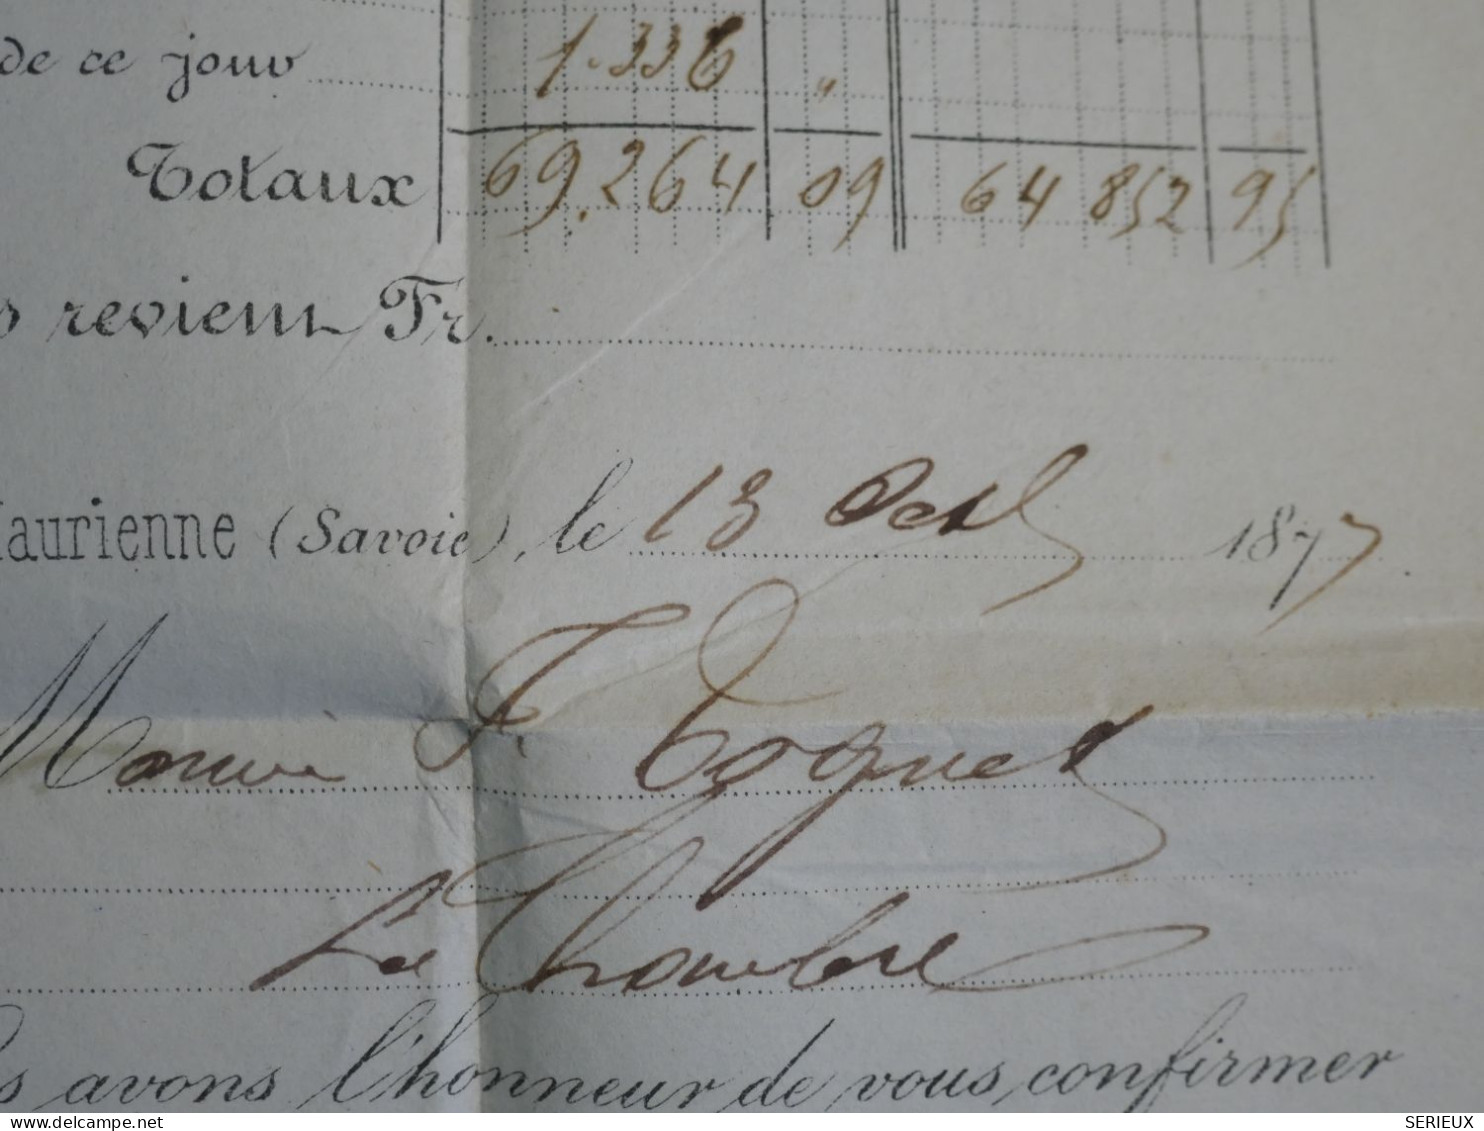 de ce jour 1.336 "
Totaux 69.264 09 64 852 95
revient Fr.
aurienne (Savoie), le 13 Oct 1877
Monsieur F. Tognet
La Chambre
s avons l'honneur de vous confirmer
www.delcampe.net
SERIEUX